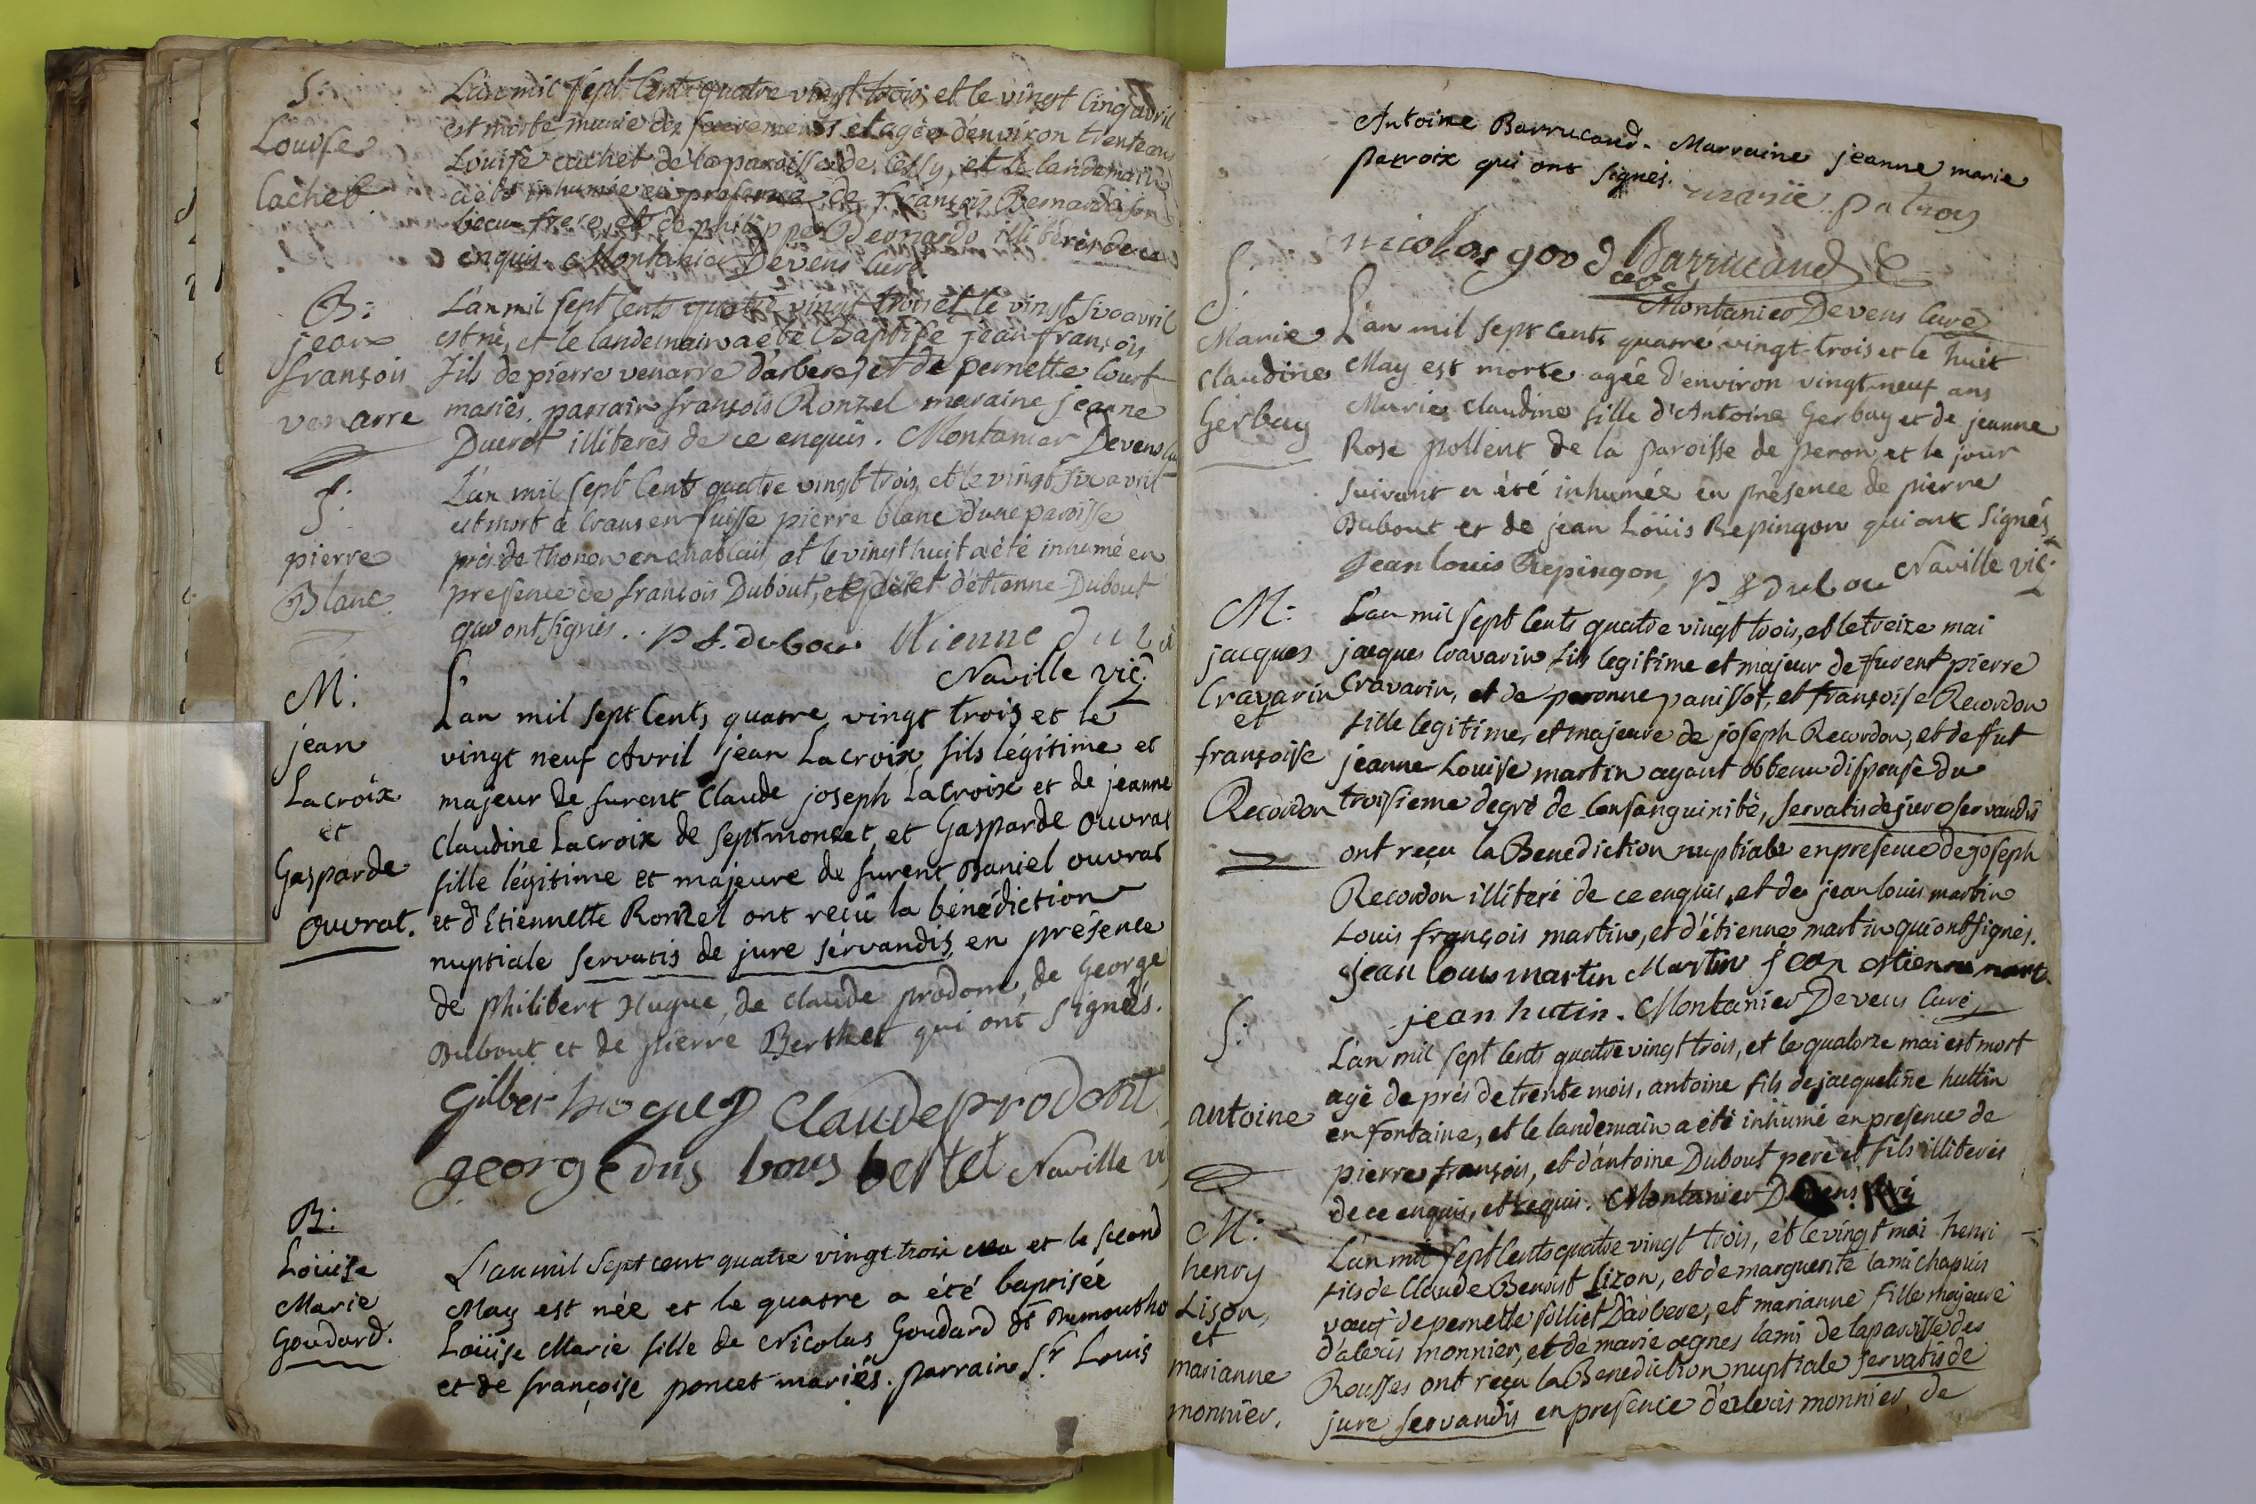 S:
Louise
Cachet
L'an mil sept Cents quatre vingt trois et le vingt Cinq avril
est morte munie des sacrements et agée d'environ trente ans
Louise cachet de la paroisse de Cessy, et le landemain
a été inhumée en presence de françois Bernard son
beau frere, et de philippe illiterés de ce
enquis. Montanier Devens Curé
B:
jean
françois
venarre
L'an mil sept Cents quatre vingt trois et le vingt six avril
est né, et le landemain a été Baptisé jean françois
fils de pierre venarre d'arbere, et de pernette Court
mariés. parrain françois Ronzel maraine jeanne
Ducret illiterés de ce enquis. Montanier Devens Cu
S:
pierre
Blanc.
L'an mil sept Cents quatre vingt trois, et le vingt six avril
est mort à Crans en suisse pierre blanc d'une paroisse
près de Thonon en chablais, et le vingt huit a été inhumé en
presence de françois Dubout, et d'étienne Dubout
qui ont signés. p f. dubou Etienne du
Naville vic.
M:
jean
Lacroix
et
Gasparde
Ouvrat.
L'an mil sept Cents quatre vingt trois et le
vingt neuf Avril jean Lacroix fils légitime et
majeur de furent Claude joseph Lacroix et de jeanne
Claudine Lacroix de Septmoncet, et Gasparde Ouvrat
fille légitime et majeure de furent Daniel Ouvrat
et d'Etiennette Ronzel ont reçû la bénédiction
nuptiale servatis de jure servandis, en présence
de Philibert Hugue, de Claude prodom, de George
Dubout et de pierre Berthet qui ont signés.
Gilber hogues Claude prodont
george dus bous bertet Naville v
B:
Loüise
Marie
Goudard.
L'an mil sept cent quatre vingt trois et le second
May est née et le quatre a été baptisée
Loüise Marie fille de Nicolas Goudard de
et de françoise poncet mariés. parrain Sr. Louis
Antoine Barrucand. Marraine jeanne marie
patroix qui ont signés. marie patroy
nicolas good Barrucand
Montanier Devens Curé
S:
Marie
Claudine
Gerbay
L'an mil sept Cents quatre vingt-trois et le huit
May est morte agée d'environ vingt-neuf ans
Marie Claudine fille d'Antoine Gerbay et de jeanne
Rose pollent de la paroisse de peron, et le jour
suivant a été inhumée en présence de pierre
Dubout et de jean Loüis Repingon qui ont signés
Jean louis Repingon, p f dubou Naville vic.
M:
jacques
Cravarin
et
françoise
Recordon
L'an mil sept Cents quatre vingt trois, et le treize mai
jacques Cravarin fils legitime et majeur de furent pierre
Cravarin, et de peronne panissot, et françoise Recordon
fille legitime, et majeure de joseph Recordon, et de fut
jeanne Louise martin ayant obtenu dispense du
troisieme degré de Consanguinité, servatis de jure servandis
ont reçu la Benediction nuptiale en presence de joseph
Recordon illiteré de ce enquis, et de jean louis martin
Louis françois martin, et d'étienne martin qui ont signés.
jean louis martin Martin jean etienne mart.
jean hutin. Montanier Devens Curé
S:
antoine
L'an mil sept Cents quatre vingt trois, et le quatorze mai est mort
agé de prés de trente mois, antoine fils de jacqueline huttin
en fontaine, et le landemain a été inhumé en presence de
pierre françois, et d'antoine Dubout pere et fils illiterés
de ce enquis, et requis. Montanier Devens Curé
M:
henry
Lison,
et
marianne
monnier.
L'an mil sept Cents quatre vingt trois, et le vingt mai henri
fils de Claude Benoit Lizon, et de marguerite lami chapuis
vœuf de pernette folliet D'arbere, et marianne fille majeure
d'alexis monnier, et de marie agnes lami de la paroisse des
Rousses ont reçu la Benediction nuptiale servatis de
jure servandis en presence d'alexis monnier, de